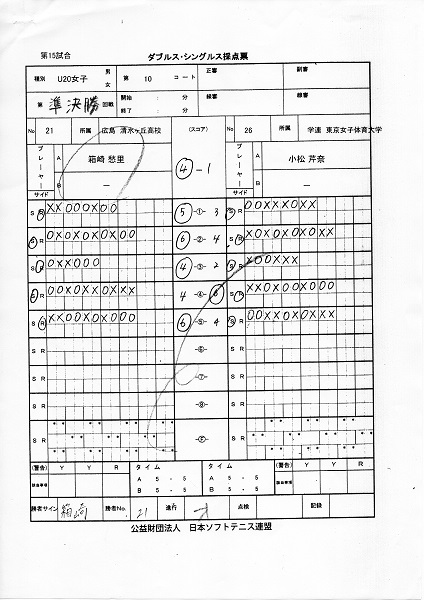 第15試合
ダブルス・シングルス採点票
種別 U20女子 男 女 第 10 コート 正審 副審
第 準決勝 回戦 開始 : 分 終了 : 分 線審 線審
No 21 所属 広島 清水ヶ丘高校 (スコア) No 26 所属 学連 東京女子体育大学
プレーヤー A 箱崎 愁里 ④-1 プレーヤー A 小松 芹奈
B ー B ー
サイド サイド
S R XX000X00 ⑤ -①- 3 S R 00XXX0XX
S R 0X0X0X0X00 ⑥ -②- 4 S R X0X0X0X0XX
S R 0XX000 ④ -③- 2 S R X00XXX
S R 00X0XX0XXX 4 -④- ⑥ S R XX0X00X000
S R XX00X0X000 ⑥ -⑤- 4 S R 00XX0X0XXX
S R -⑥- S R
S R -⑦- S R
S R -⑧- S R
S R S R
(警告) Y Y R タイム タイム (警告) Y Y R
A 5-5 A 5-5
B 5-5 B 5-5
勝者サイン 箱崎 勝者No. 21 進行 点検 記録
公益財団法人 日本ソフトテニス連盟